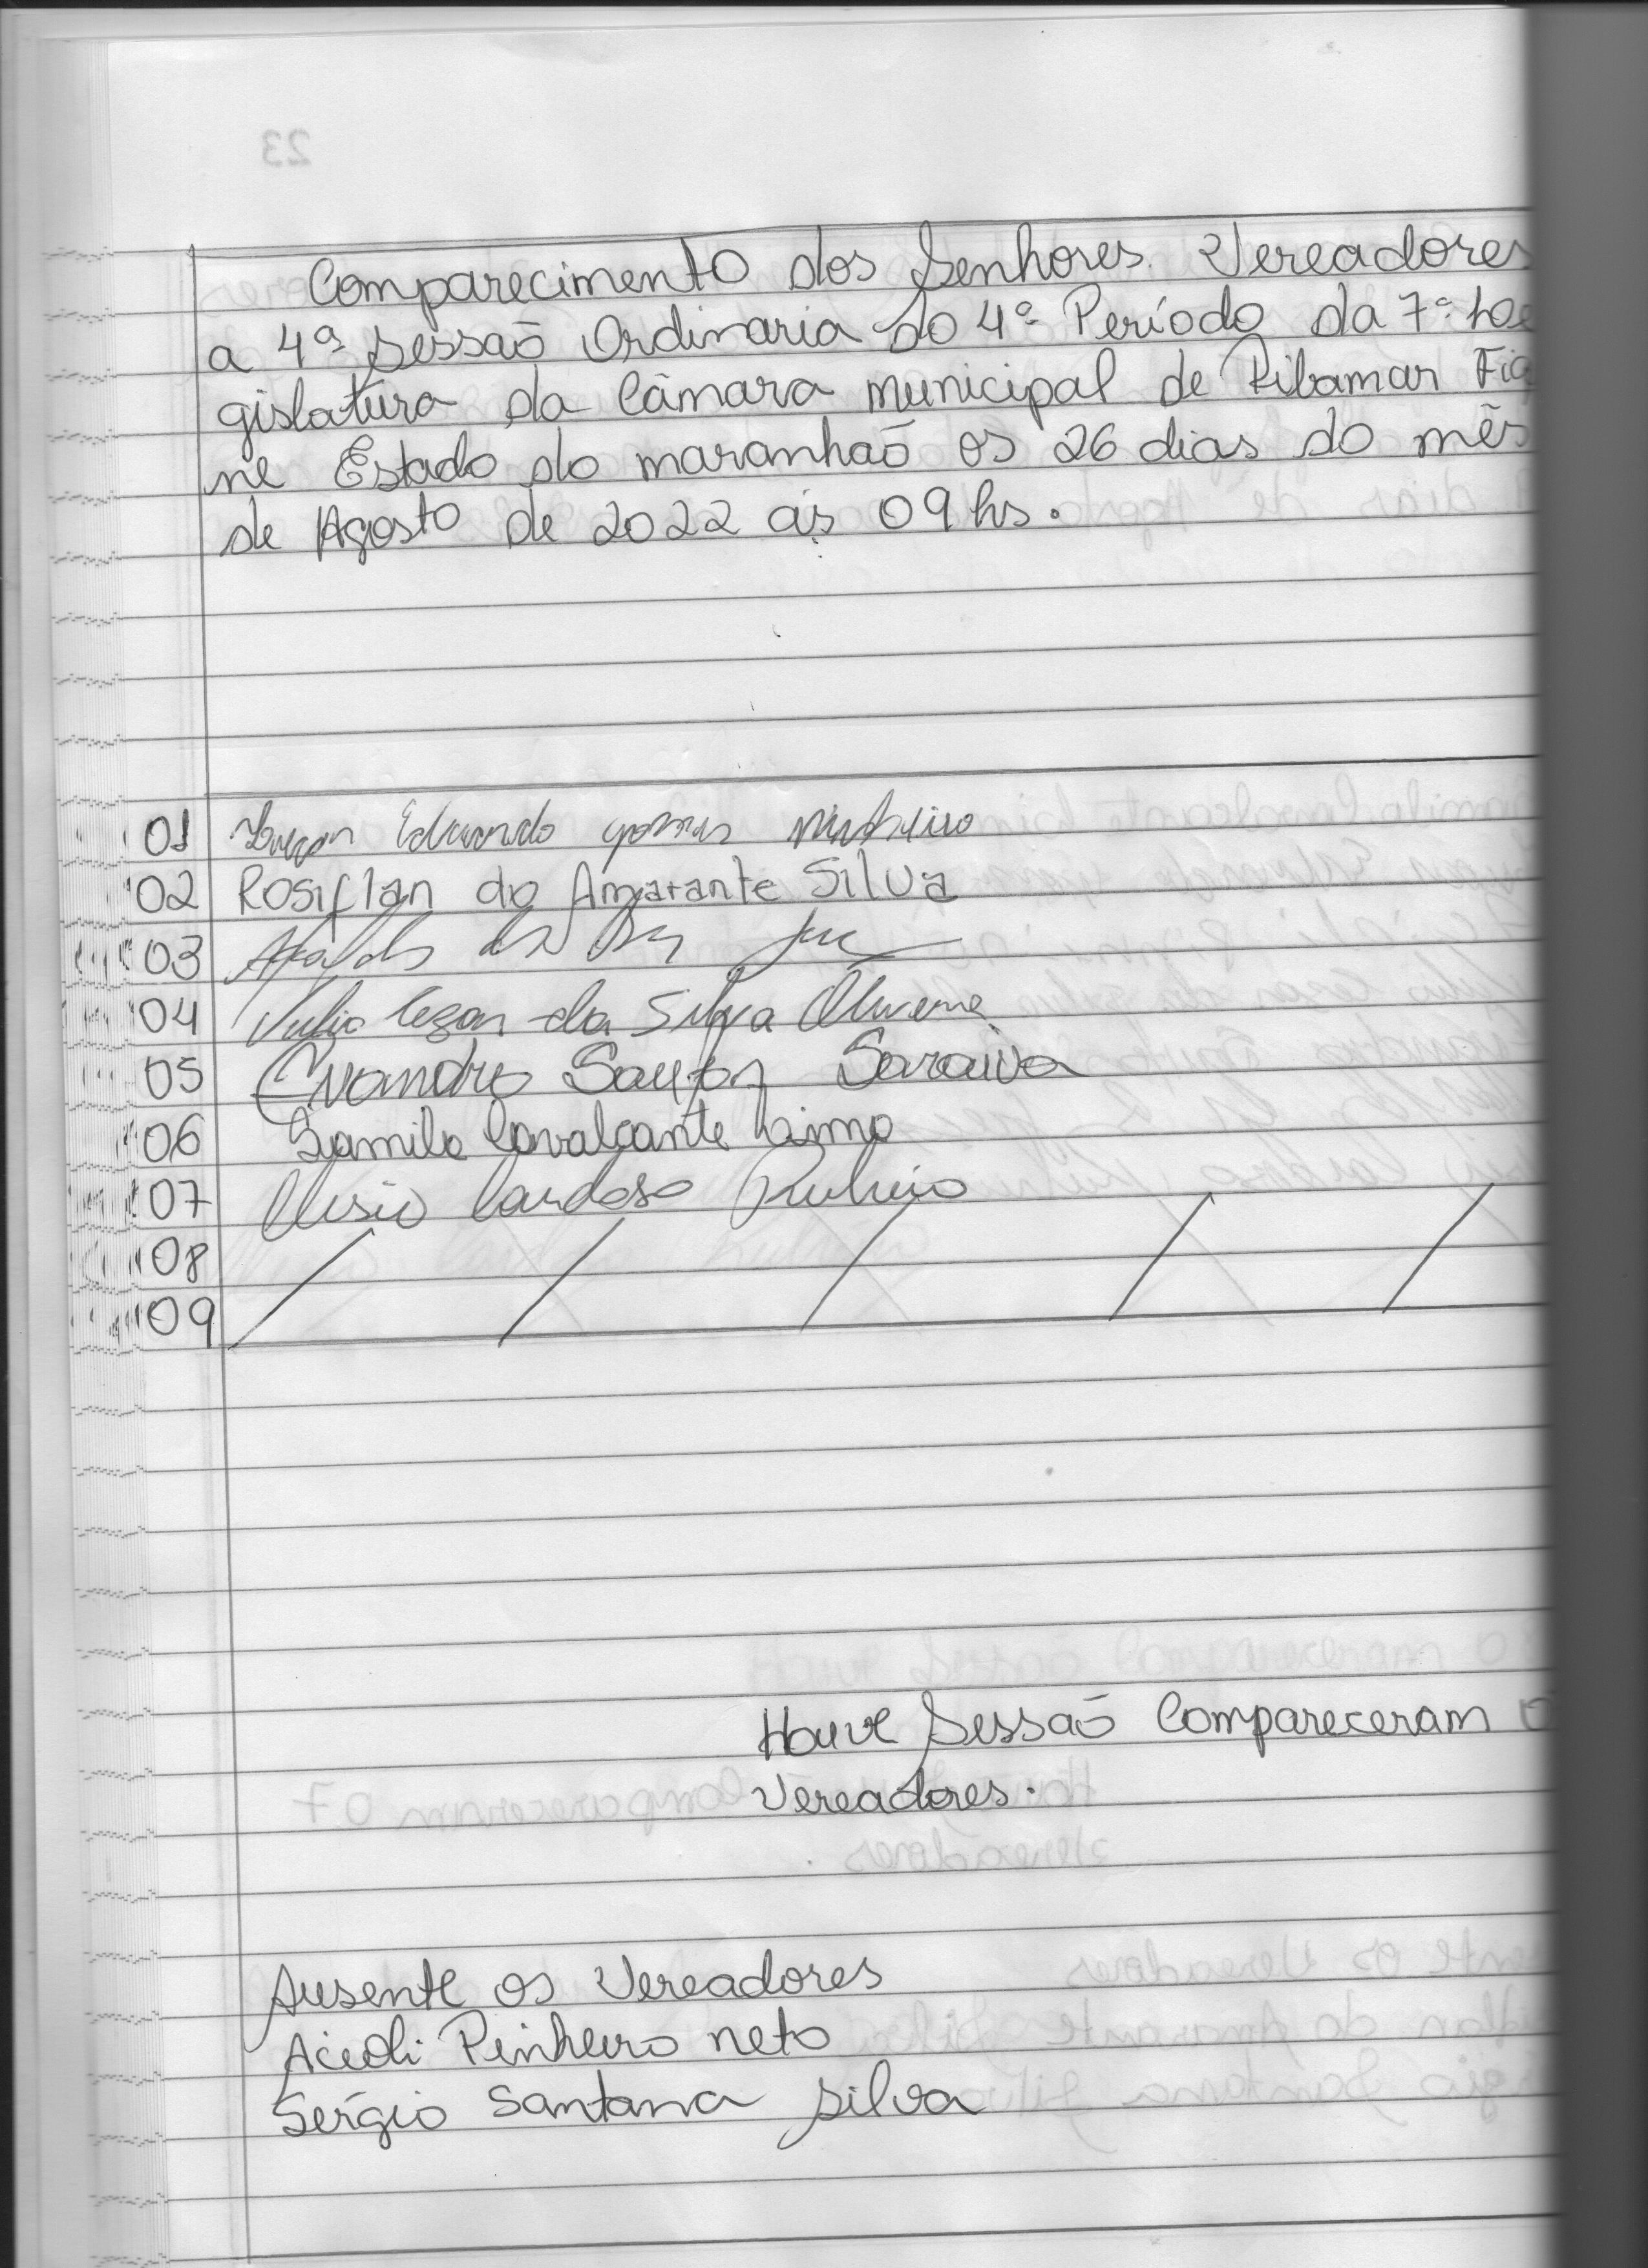 Comparecimento dos Senhores Vereadores
a 4ª Sessão Ordinaria do 4º Período da 7ª Le
gislatura da Câmara municipal de Ribamar Fiq
ne Estado do maranhão os 26 dias do mês
de Agosto de 2022 ás 09 hs.
01 Eduardo gomes
02 Rosiflan do Amarante Silva
03
04 Julio Cezar da Silva Oliveira
05 Evandro Santos Saraiva
06 Samila Cavalcante Lima
07 Cardoso
08
09
Houve Sessão Compareceram
Vereadores.
Ausente os Vereadores
Acioli Pinheiro neto
Sérgio Santana Silva